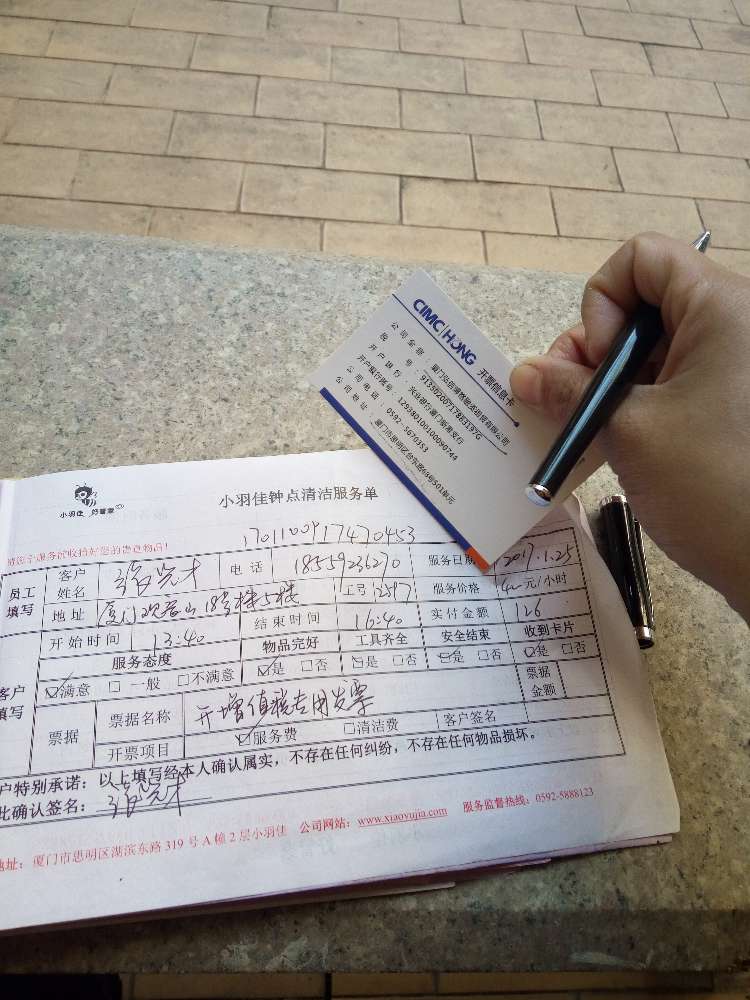 CIMC|HONG 开票信息卡
公司全称：
税号：91350200717883137G
开户银行：兴业银行厦门
开户银行账号：129380100100090744
公司电话：0592-5670153
公司地址：厦门市思明区台东路68号501单元
小羽佳 好管家
小羽佳钟点清洁服务单
17011009917470453
员工填写 客户姓名 电话 18559236270 服务日期 2017.1.25
地址 厦门观音山18号 工号 服务价格 元/小时
开始时间 13:40 结束时间 16:40 实付金额 126
服务态度 物品完好 工具齐全 安全结束 收到卡片
客户填写 ☑满意 □一般 □不满意 ☑是 □否 ☑是 □否 ☑是 □否 ☑是 □否
票据 票据名称 开增值税专用发票 票据金额
开票项目 ☑服务费 □清洁费 客户签名
户特别承诺：以上填写经本人确认属实，不存在任何纠纷，不存在任何物品损坏。
此确认签名：
地址：厦门市思明区湖滨东路319号A幢2层小羽佳 公司网站：www.xiaoyujia.com 服务监督热线：0592-5888123